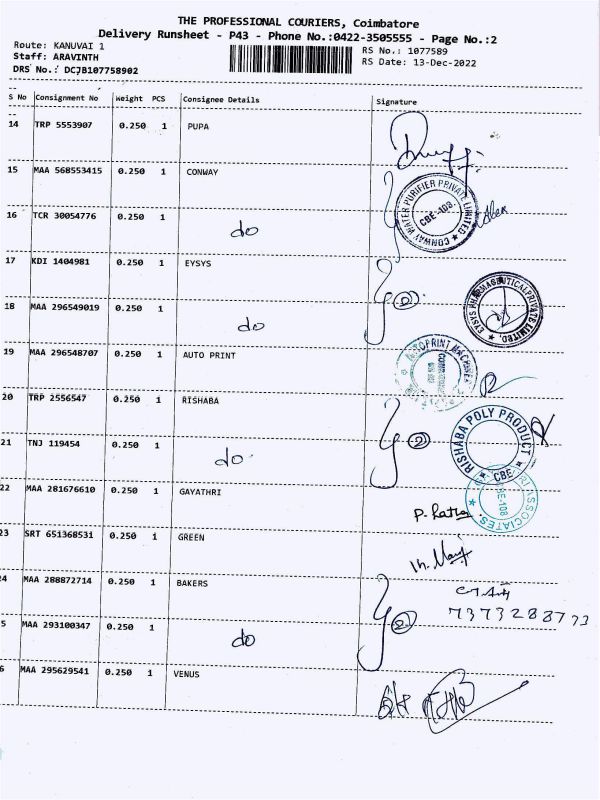 THE PROFESSIONAL COURIERS, Coimbatore
Delivery Runsheet - P43 - Phone No.:0422-3505555 - Page No.:2
Route: KANUVAI 1
RS No.: 1077589
Staff: ARAVINTH
RS Date: 13-Dec-2022
DRS No.: DCJB107758902
S No Consignment No Weight PCS Consignee Details Signature
14 TRP 5553907 0.250 1 PUPA
15 MAA 568553415 0.250 1 CONWAY
CONWAY WATER PURIFIER PRIVATE LIMITED ★ CBE-108.
16 TCR 30054776 0.250 1 do
17 KDI 1404981 0.250 1 EYSYS
2
EYSYS PHARMACEUTICAL PRIVATE LIMITED.
18 MAA 296549019 0.250 1 do
19 MAA 296548707 0.250 1 AUTO PRINT
AUTOPRINT MACHINERY
20 TRP 2556547 0.250 1 RISHABA
2
RISHABA POLY PRODUCT ★ CBE ★
21 TNJ 119454 0.250 1 do
22 MAA 281676610 0.250 1 GAYATHRI
ASSOCIATES
23 SRT 651368531 0.250 1 GREEN
24 MAA 288872714 0.250 1 BAKERS
2
7373288773
5 MAA 293100347 0.250 1 do
6 MAA 295629541 0.250 1 VENUS